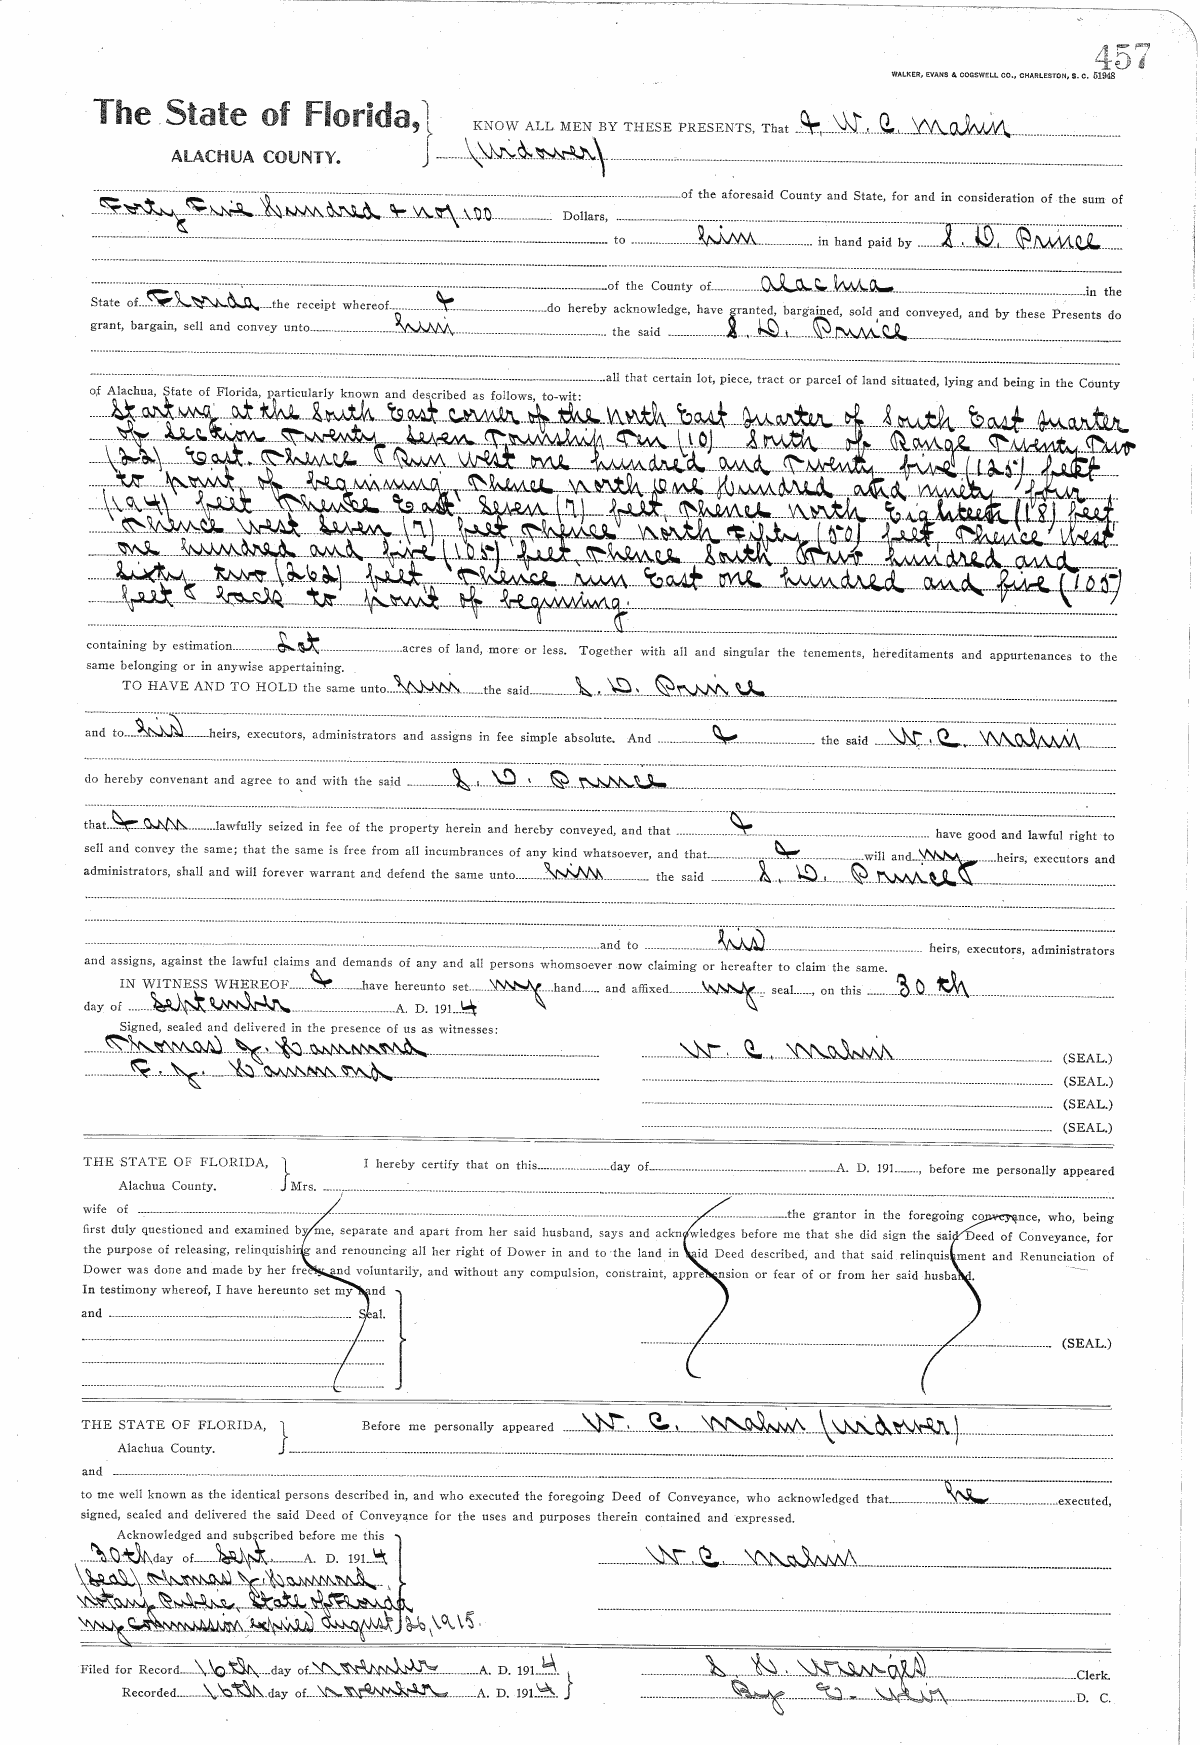 457
WALKER, EVANS & COGSWELL CO., CHARLESTON, S. C. 51948
The State of Florida, KNOW ALL MEN BY THESE PRESENTS, That I, W. C. Mahin
ALACHUA COUNTY. (Widower)
of the aforesaid County and State, for and in consideration of the sum of
Forty Five Hundred & no/100 Dollars,
to him in hand paid by S. D. Prince
of the County of Alachua in the
State of Florida the receipt whereof I do hereby acknowledge, have granted, bargained, sold and conveyed, and by these Presents do
grant, bargain, sell and convey unto him the said S. D. Prince
all that certain lot, piece, tract or parcel of land situated, lying and being in the County
of Alachua, State of Florida, particularly known and described as follows, to-wit:
Starting at the South East corner of the north East Quarter of South East Quarter
of Section Twenty Seven Township Ten (10) South of Range Twenty Two
(22) East. Thence Run West one hundred and Twenty five (125) feet
to point of beginning Thence north one Hundred and ninety four
(194) feet Thence East Seven (7) feet Thence north Eighteen (18) feet
Thence West Seven (7) feet, Thence north Fifty (50) feet, Thence West
one hundred and five (105) feet, Thence South Two hundred and
Sixty two (262) feet Thence run East one hundred and five (105)
feet back to point of beginning.
containing by estimation Lot acres of land, more or less. Together with all and singular the tenements, hereditaments and appurtenances to the
same belonging or in anywise appertaining.
TO HAVE AND TO HOLD the same unto him the said S. D. Prince
and to his heirs, executors, administrators and assigns in fee simple absolute. And I the said W. C. Mahin
do hereby convenant and agree to and with the said S. D. Prince
that I am lawfully seized in fee of the property herein and hereby conveyed, and that I have good and lawful right to
sell and convey the same; that the same is free from all incumbrances of any kind whatsoever, and that I will and my heirs, executors and
administrators, shall and will forever warrant and defend the same unto him the said S. D. Prince
and to his heirs, executors, administrators
and assigns, against the lawful claims and demands of any and all persons whomsoever now claiming or hereafter to claim the same.
IN WITNESS WHEREOF I have hereunto set my hand and affixed my seal, on this 30th
day of September A. D. 1914
Signed, sealed and delivered in the presence of us as witnesses:
Thomas J. Hammond W. C. Mahin (SEAL.)
F. J. Hammond (SEAL.)
(SEAL.)
(SEAL.)
THE STATE OF FLORIDA, I hereby certify that on this day of A. D. 191 , before me personally appeared
Alachua County. Mrs.
wife of the grantor in the foregoing conveyance, who, being
first duly questioned and examined by me, separate and apart from her said husband, says and acknowledges before me that she did sign the said Deed of Conveyance, for
the purpose of releasing, relinquishing and renouncing all her right of Dower in and to the land in said Deed described, and that said relinquishment and Renunciation of
Dower was done and made by her freely and voluntarily, and without any compulsion, constraint, apprehension or fear of or from her said husband.
In testimony whereof, I have hereunto set my hand
and Seal.
(SEAL.)
THE STATE OF FLORIDA, Before me personally appeared W. C. Mahin (Widower)
Alachua County.
and
to me well known as the identical persons described in, and who executed the foregoing Deed of Conveyance, who acknowledged that he executed,
signed, sealed and delivered the said Deed of Conveyance for the uses and purposes therein contained and expressed.
Acknowledged and subscribed before me this
30th day of Sept. A. D. 1914 W. C. Mahin
(Seal) Thomas J. Hammond
Notary Public, State of Florida
My Commission expires August 26, 1915.
Filed for Record 16th day of November A. D. 1914 S. H. Wienges Clerk.
Recorded 16th day of November A. D. 1914 By E. Weir D. C.